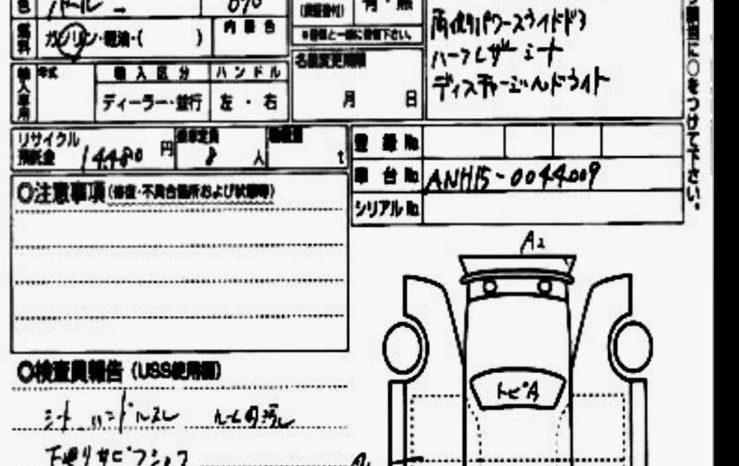 色 パール 070 有・無
燃料 ガソリン・軽油・( ) 内装色
※書類と一緒に御送付下さい。
両側パワースライドドア
ハーフレザーシート
ディスチャージヘッドライト
輸入車用 年式 輸入区分 ハンドル 名義変更期限
ディーラー・並行 左・右 月 日
リサイクル預託金 14480円 乗車定員 8人 積載量 t
登録No.
車台No. ANH15-0044009
シリアルNo.
に○をつけて下さい。
◎注意事項(修復・不具合箇所および状態等)
A2
◎検査員報告(USS使用欄)
トビA
シート ハンドルスレ ルーム内汚れ
下廻りサビ